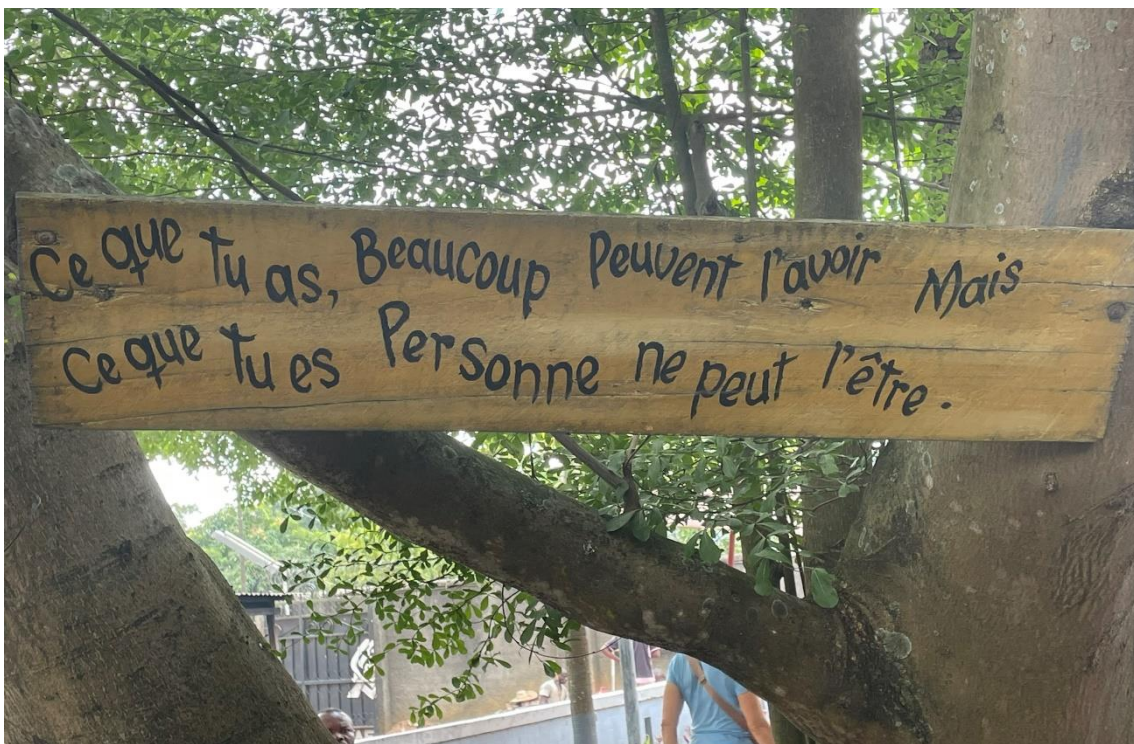 Ce que tu as, Beaucoup Peuvent l'avoir Mais
Ce que tu es Personne ne peut l'être.